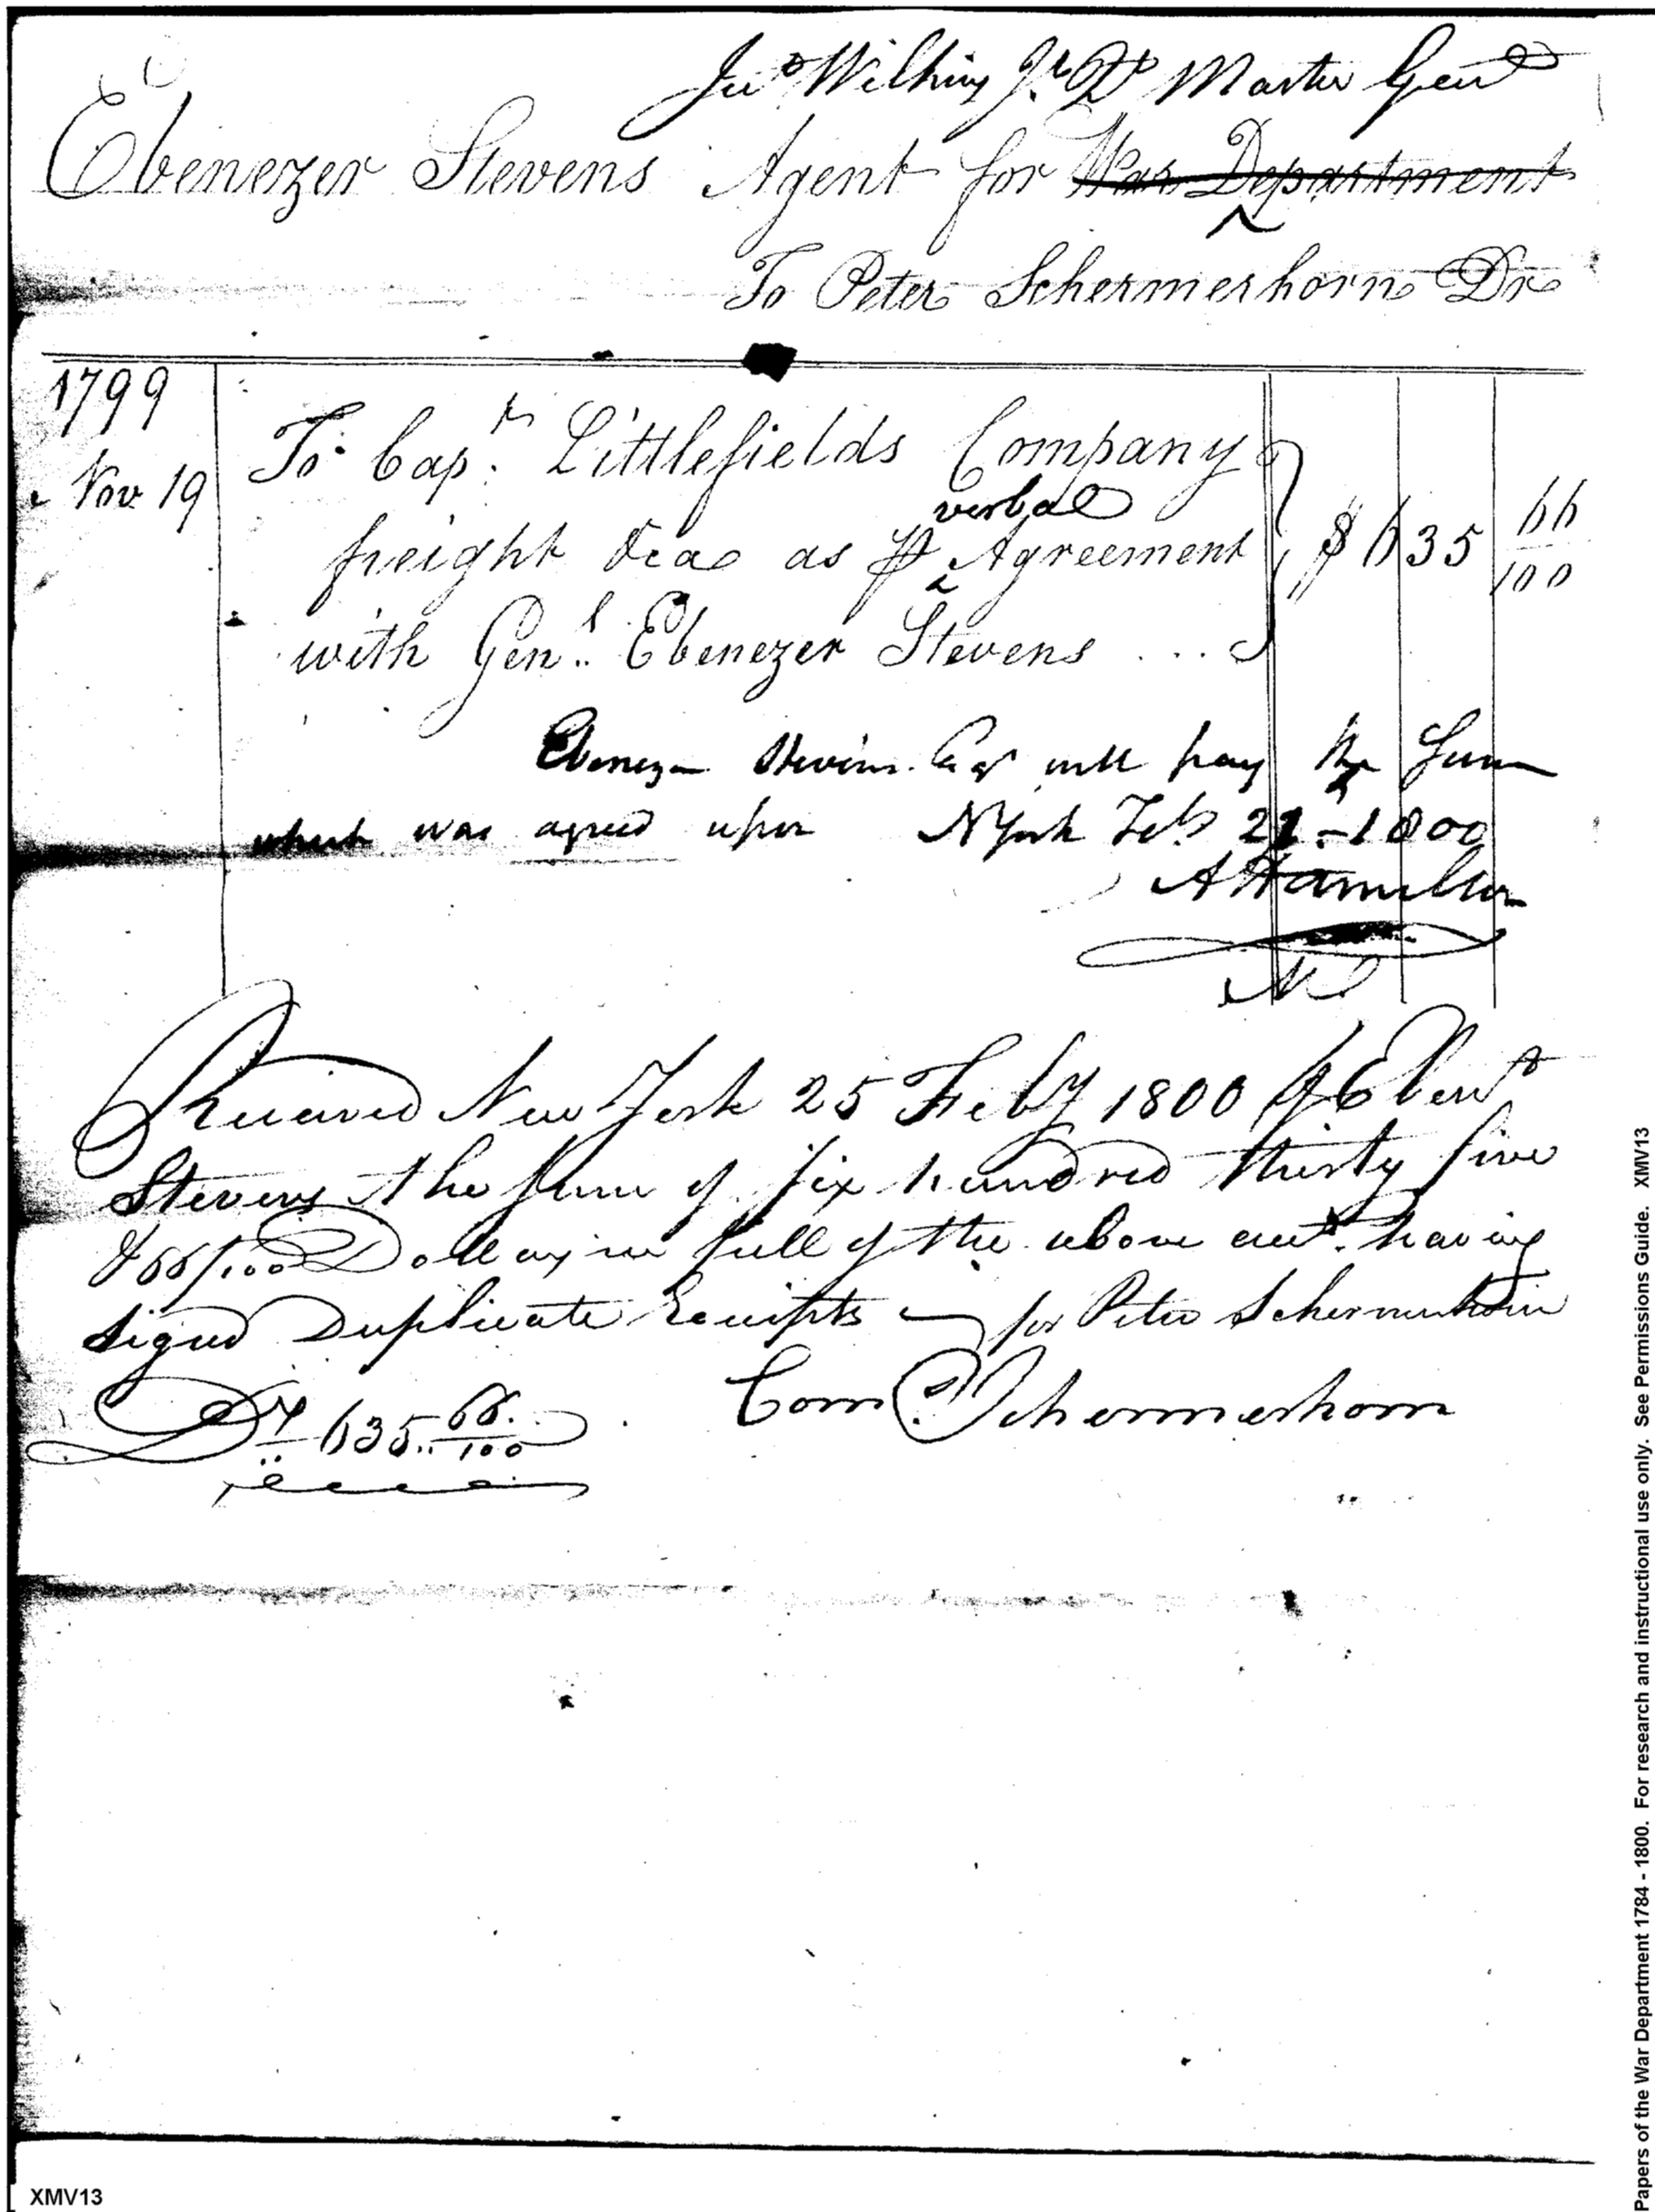 Jno Wilkins Jr. Qr Master Genl
Ebenezer Stevens Agent for War Department
To Peter Schermerhorn Dr
1799
Nov 19 To Capt. Littlefields Company
verbal
freight &ca as ⅌ Agreement $ 635 66/100
with Genl. Ebenezer Stevens ...
Ebenezer Stevens Esqr will pay the sum
which was agreed upon NYork Feb 21 - 1800
A Hamilton
Received New York 25 Feby 1800 of Ebenr
Stevens the sum of six hundred thirty five
& 66/100 Dollars in full of the above acct. having
signed Duplicate Receipts for Peter Schermerhorn
Ds 635.. 66/100 Corn P Schermerhorn
XMV13
Papers of the War Department 1784 - 1800. For research and instructional use only. See Permissions Guide. XMV13